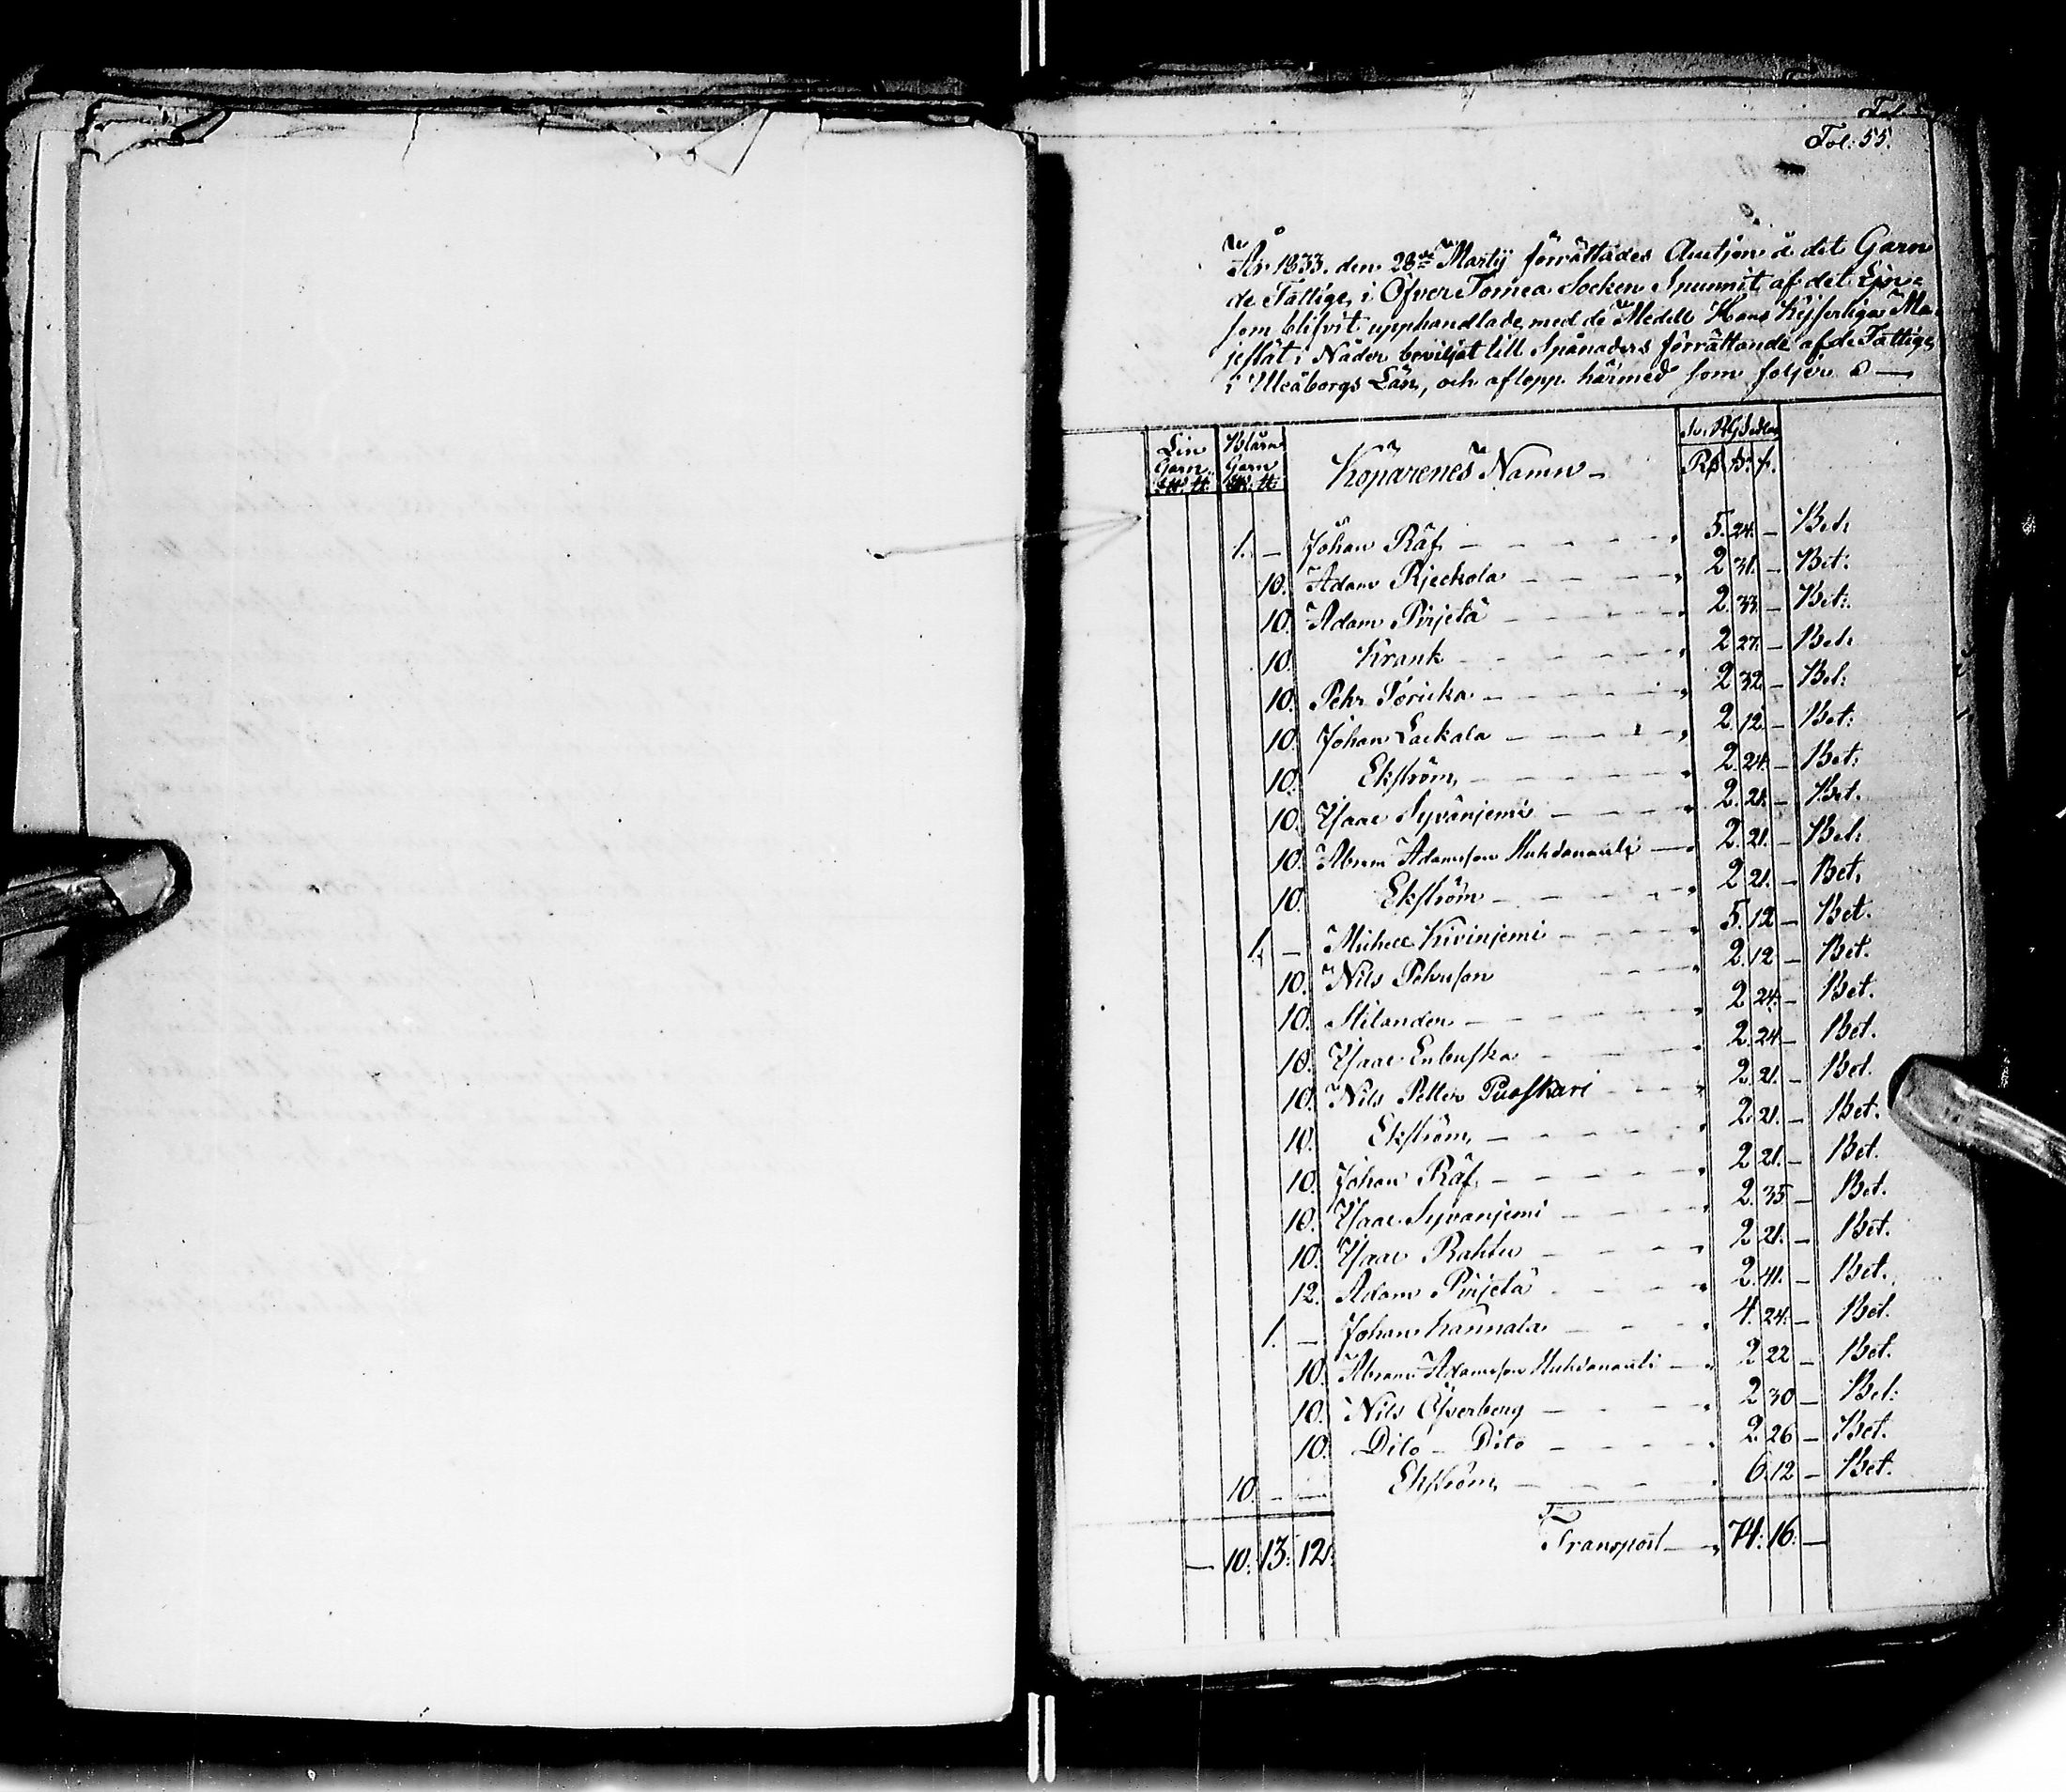 Fol: 55.
År 1833. den 28de Martij förrättades Auction å det Garn
de Fattige, i Öfver Tornea Socken Spunnit af det Lin-
som blifvit upphandlade med de Medell Hans Kejserliga Ma-
jestät i Nåder beviljat till Spånaders förrättande af de Fattige
i Uleåborgs Län, och aflopp härmed som följer
Lin Garn Blårn Garn Köparenes Namn Sv. RG Sedlar
L℔ ℔ L℔ ℔ R β r.
1. — Johan Räf 5. 24. — Bet:
10. Adam Rjeckola 2 31. — Bet:
10. Adam Pirjetä 2. 33. — Bet:
10. Krank 2 27. — Bet:
10. Pehr 2 32 — Bet:
10. Johan Lackala 2 12 — Bet:
10. Ekström 2. 24. — Bet.
10. Isaac Syvänjemi 2. 21. — Bet.
10. Abram Adamsson 2. 21. — Bet:
10. Ekström 2 21. — Bet.
1. — Michell Kivinjemi 5. 12 — Bet.
10. Nils Pehrsson 2. 12 — Bet.
10. Milanden 2 24. — Bet.
10. Isaac 2. 24 — Bet.
10. Nils Petter Puoskari 2. 21. — Bet.
10. Ekström 2. 21. — Bet.
10. Johan Räf 2 21. — Bet.
10. Isaac Syvänjemi 2. 35 — Bet.
10. Isaac Rahtu 2 21. — Bet.
12. Adam Pirjetä 2. 41. — Bet.
1. — Johan Kannala 4. 24. — Bet.
10. Abram Adamsson 2 22 — Bet.
10. Nils Öfverberg 2 30 — Bet:
10. Dito — Dito 2. 26 — Bet.
10. — — Ekström 6. 12 — Bet.
— 10. 13. 12. Transport 74. 16. —